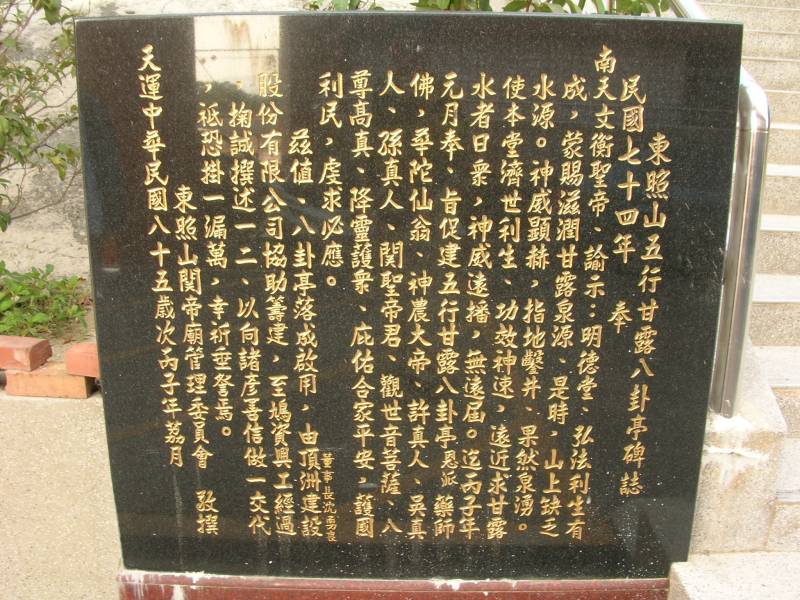 東照山五行甘露八卦亭碑誌
民國七十四年　奉
南天文衡聖帝、諭示：明德堂、弘法利生有
成，蒙賜滋潤甘露泉源、是時，山上玦乏
水源。神威顯赫，指地鑿井、果然泉湧。
使本堂濟世利生、功效神速，遠近求甘露
水者日衆，神威遠播，無遠屆。迄丙子年
元月奉、旨促建五行甘露八卦亭恩派藥師
佛，華陀仙翁、神農大帝、許真人、吳真
人、孫真人、関聖帝君、觀世音菩薩、八
尊高真、降靈護衆、庇佑合家平安，護國
利民，虔求必應。
茲值、八卦亭落成啟用，由頂洲建設
董事長沈勇良
股份有限公司協助籌建，至鳩資興工經過
，掬誠撰述一二、以向諸彥善信做一交代
，祇恐掛一漏萬，幸祈垂詧焉。
東照山関帝廟管理委員會　敬撰
天運中華民國八十五歲次丙子年荔月